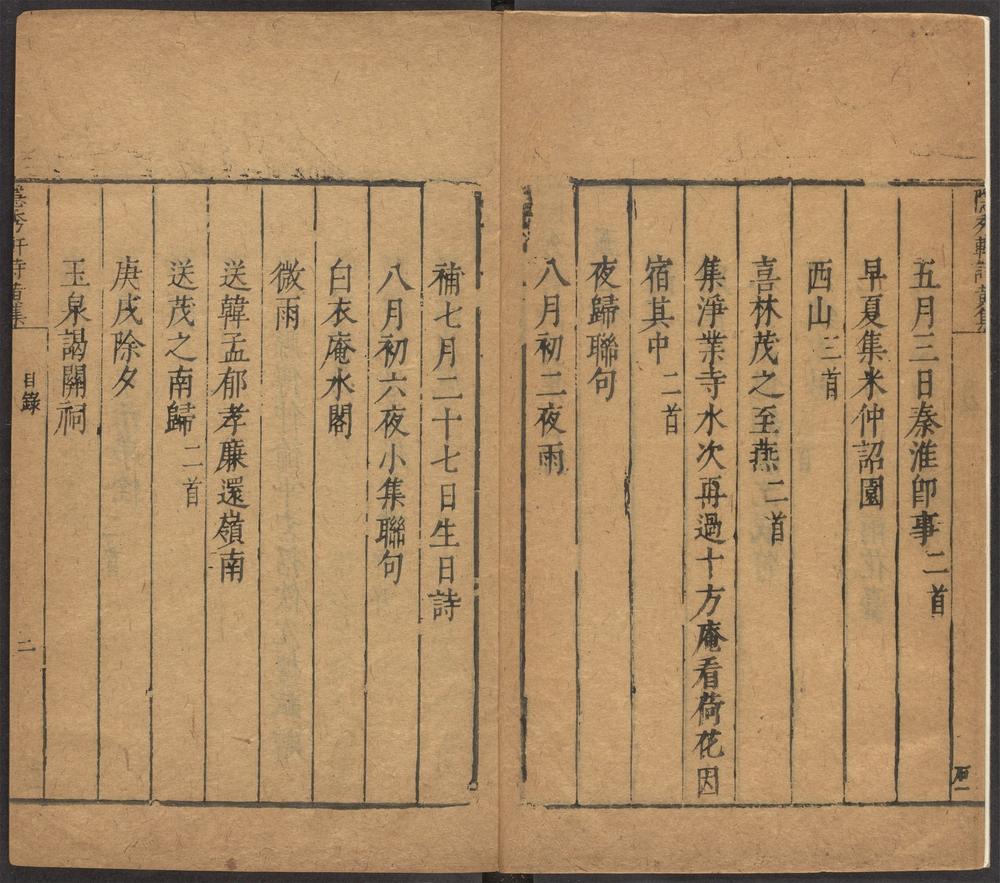 隱秀軒詩黃集
五月三日秦淮卽事二首
早夏集米仲詔園
西山三首
喜林茂之至燕二首
集淨業寺水次再過十方庵看荷花因
宿其中二首
夜歸聯句
八月初二夜雨
補七月二十七日生日詩
八月初六夜小集聯句
白衣庵水閣
微雨
送韓孟郁孝廉還嶺南
送茂之南歸二首
庚戌除夕
玉泉謁關祠
隱秀軒詩黃集
目錄
二